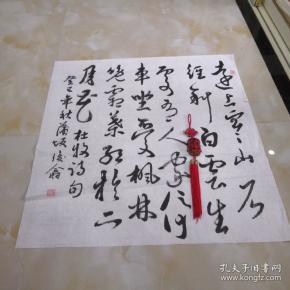 远上寒山石
径斜白云生
处有人家停
车坐爱枫林
晚霜叶红于二
月花 杜牧诗句
癸巳年秋蒲坂
孔夫子旧书网